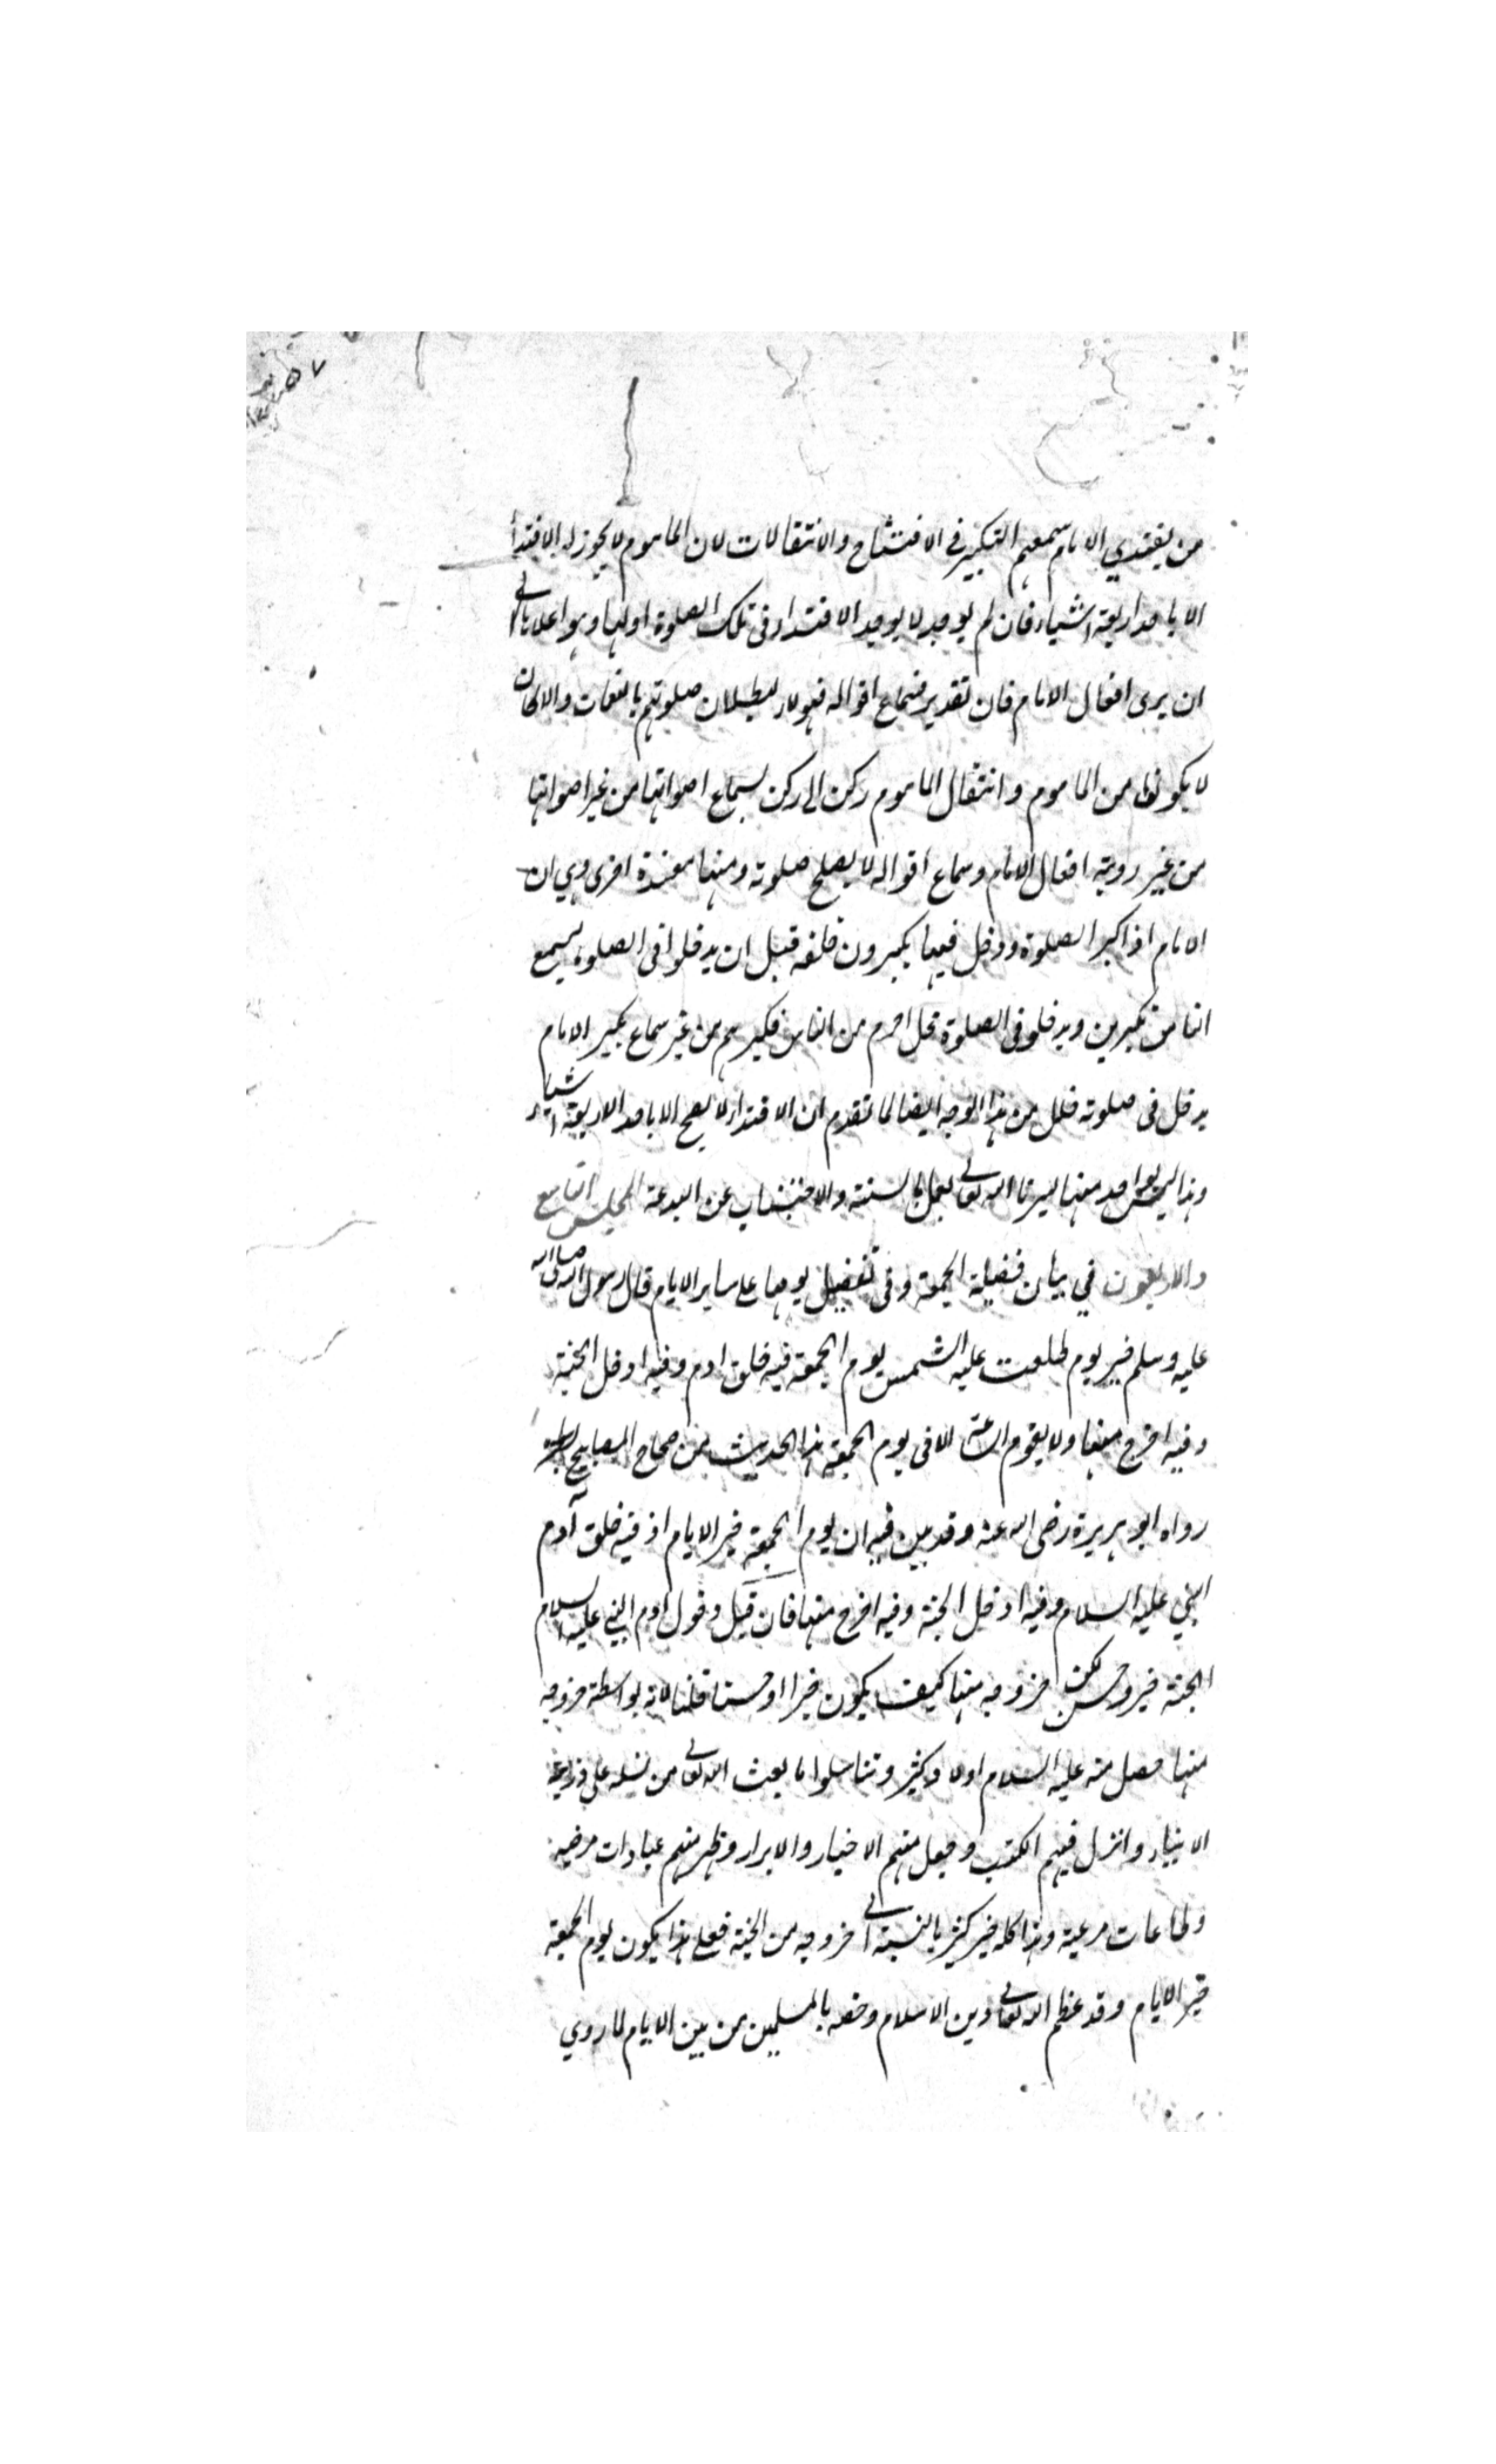 من يقتدي الامام سمعهم التكبير في الافتتاح والانتقالات لان الماموم لا يجوز له الاقتدأ
الا باحد اربعة اشياء فان لم يوجد لا يوجد الاقتداء في تلك الصلوة اولها وهو اعلاها
ان يرى افعال الامام فان تقدير فسماع اقواله لبطلان صلوتهم بالنغمات والالحان
لا يكون من الماموم وانتقال الماموم ركن الى ركن لسماع اصواتها من غير اصواتها
من غير روية افعال الامام وسماع اقواله لا يصلح صلوته ومنها مفسدة اخرى وهي ان
الامام اذا كبر الصلوة ودخل فيها يكبرون خلفه قبل ان يدخلوا في الصلوة ليسمع
الناس تكبيرين ويدخلو في الصلوة من الناس من غير سماع تكبير الامام
يدخل في صلوته خلل من هذا الوجه ايضا لما تقدم ان الاقتداء لا يصح الا باحد الاربعة اشياء
وهذا ليس واحد منها يسرنا الله تعالى بعمل بالسنة والاجتناب عن البدعة المجلس التاسع
والاربعون في بيان فضيلة الجمعة وفي تفضيل يومها على ساير الايام قال رسول الله صلى الله
عليه وسلم خير يوم طلعت عليه الشمس يوم الجمعة فيه خلق ادم وفيه ادخل الجنة
وفيه اخرج منها ولا يقوم الساعة الا في يوم الجمعة هذا الحديث من صحاح المصابيح
رواه ابو هريرة رضى الله عنه وقد بين فيه ان يوم الجمعة خير الايام اذ فيه خلق آدم
النبي عليه السلام وفيه ادخل الجنة وفيه اخرج منها فان قيل دخول ادم النبي عليه السلام
الجنة خير وحسن لكن خروجه منها كيف يكون خيرا او حسنا قلنا لانه بواسطة خروجه
منها حصل منه عليه السلام اولاد كثير وتناسلوا ما بعث الله تعالى من نسله على ذريته
الانبياء وانزل فيهم الكتب وجعل منهم الاخيار والابرار وظهر منهم عبادات مرضية
وطاعات مرعية وهذا كله خير كثير بالنسبة الى خروجه من الجنة فعلى هذا يكون يوم الجمعة
خير الايام وقد عظم الله تعالى دين الاسلام وخصه بالمسلمين من بين الايام لما روي